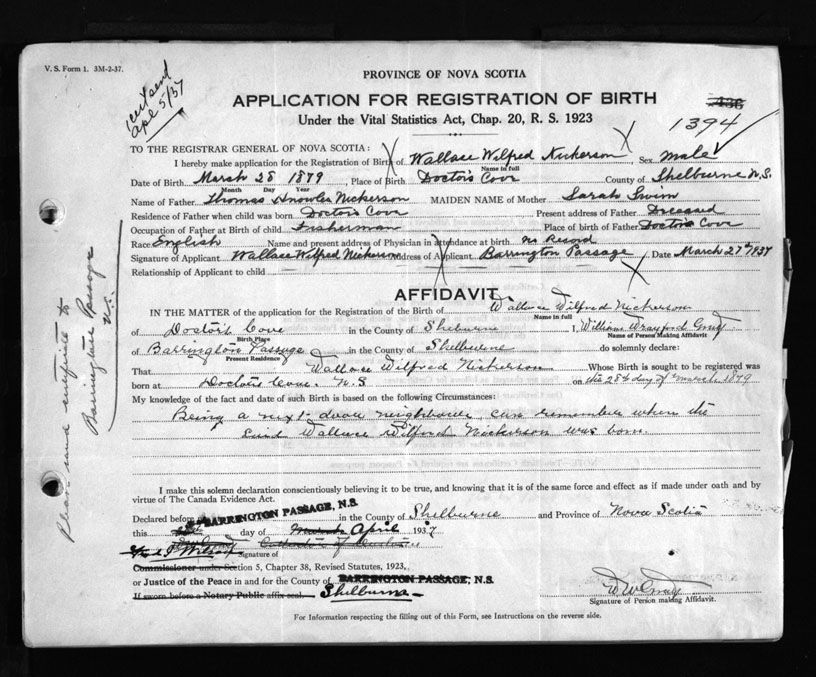 V. S. Form 1. 3M-2-37.
cert send
Apl 5/37
PROVINCE OF NOVA SCOTIA
APPLICATION FOR REGISTRATION OF BIRTH
Under the Vital Statistics Act, Chap. 20, R. S. 1923
1394
TO THE REGISTRAR GENERAL OF NOVA SCOTIA:
I hereby make application for the Registration of Birth of Wallace Wilfred Nickerson Sex male
Name in full
Date of Birth March 28 1879, Place of Birth Doctor's Cove County of Shelburne N.S.
Month Day Year
Name of Father Thomas Knowles Nickerson MAIDEN NAME of Mother Sarah Swim
Residence of Father when child was born Doctor's Cove Present address of Father Deceased
Occupation of Father at Birth of child Fisherman Place of birth of Father Doctor's Cove
Race English Name and present address of Physician in attendance at birth no Record
Signature of Applicant Wallace Wilfred Nickerson Address of Applicant Barrington Passage Date March 27th 1937
Relationship of Applicant to child
AFFIDAVIT
IN THE MATTER of the application for the Registration of the Birth of Wallace Wilfred Nickerson
Name in full
of Doctor's Cove in the County of Shelburne I, William
Birth Place Name of Person Making Affidavit
of Barrington Passage in the County of Shelburne do solemnly declare:
Present Residence
That Wallace Wilfred Nickerson Whose Birth is sought to be registered was
born at Doctors Cove. N.S on the 28th day of March 1879
My knowledge of the fact and date of such Birth is based on the following Circumstances:
Being a next door neighbour, can remember when the
said Wallace Wilfred Nickerson was born.
I make this solemn declaration conscientiously believing it to be true, and knowing that it is of the same force and effect as if made under oath and by
virtue of The Canada Evidence Act.
Declared before BARRINGTON PASSAGE, N.S. in the County of Shelburne and Province of Nova Scotia
this day of March April 1937
Signature of
Commissioner under Section 5, Chapter 38, Revised Statutes, 1923,
or Justice of the Peace in and for the County of BARRINGTON PASSAGE, N.S.
If sworn before a Notary Public affix seal. Shelburne
Signature of Person making Affidavit.
For Information respecting the filling out of this Form, see Instructions on the reverse side.
Please send certificate to
Barrington Passage
N.S.